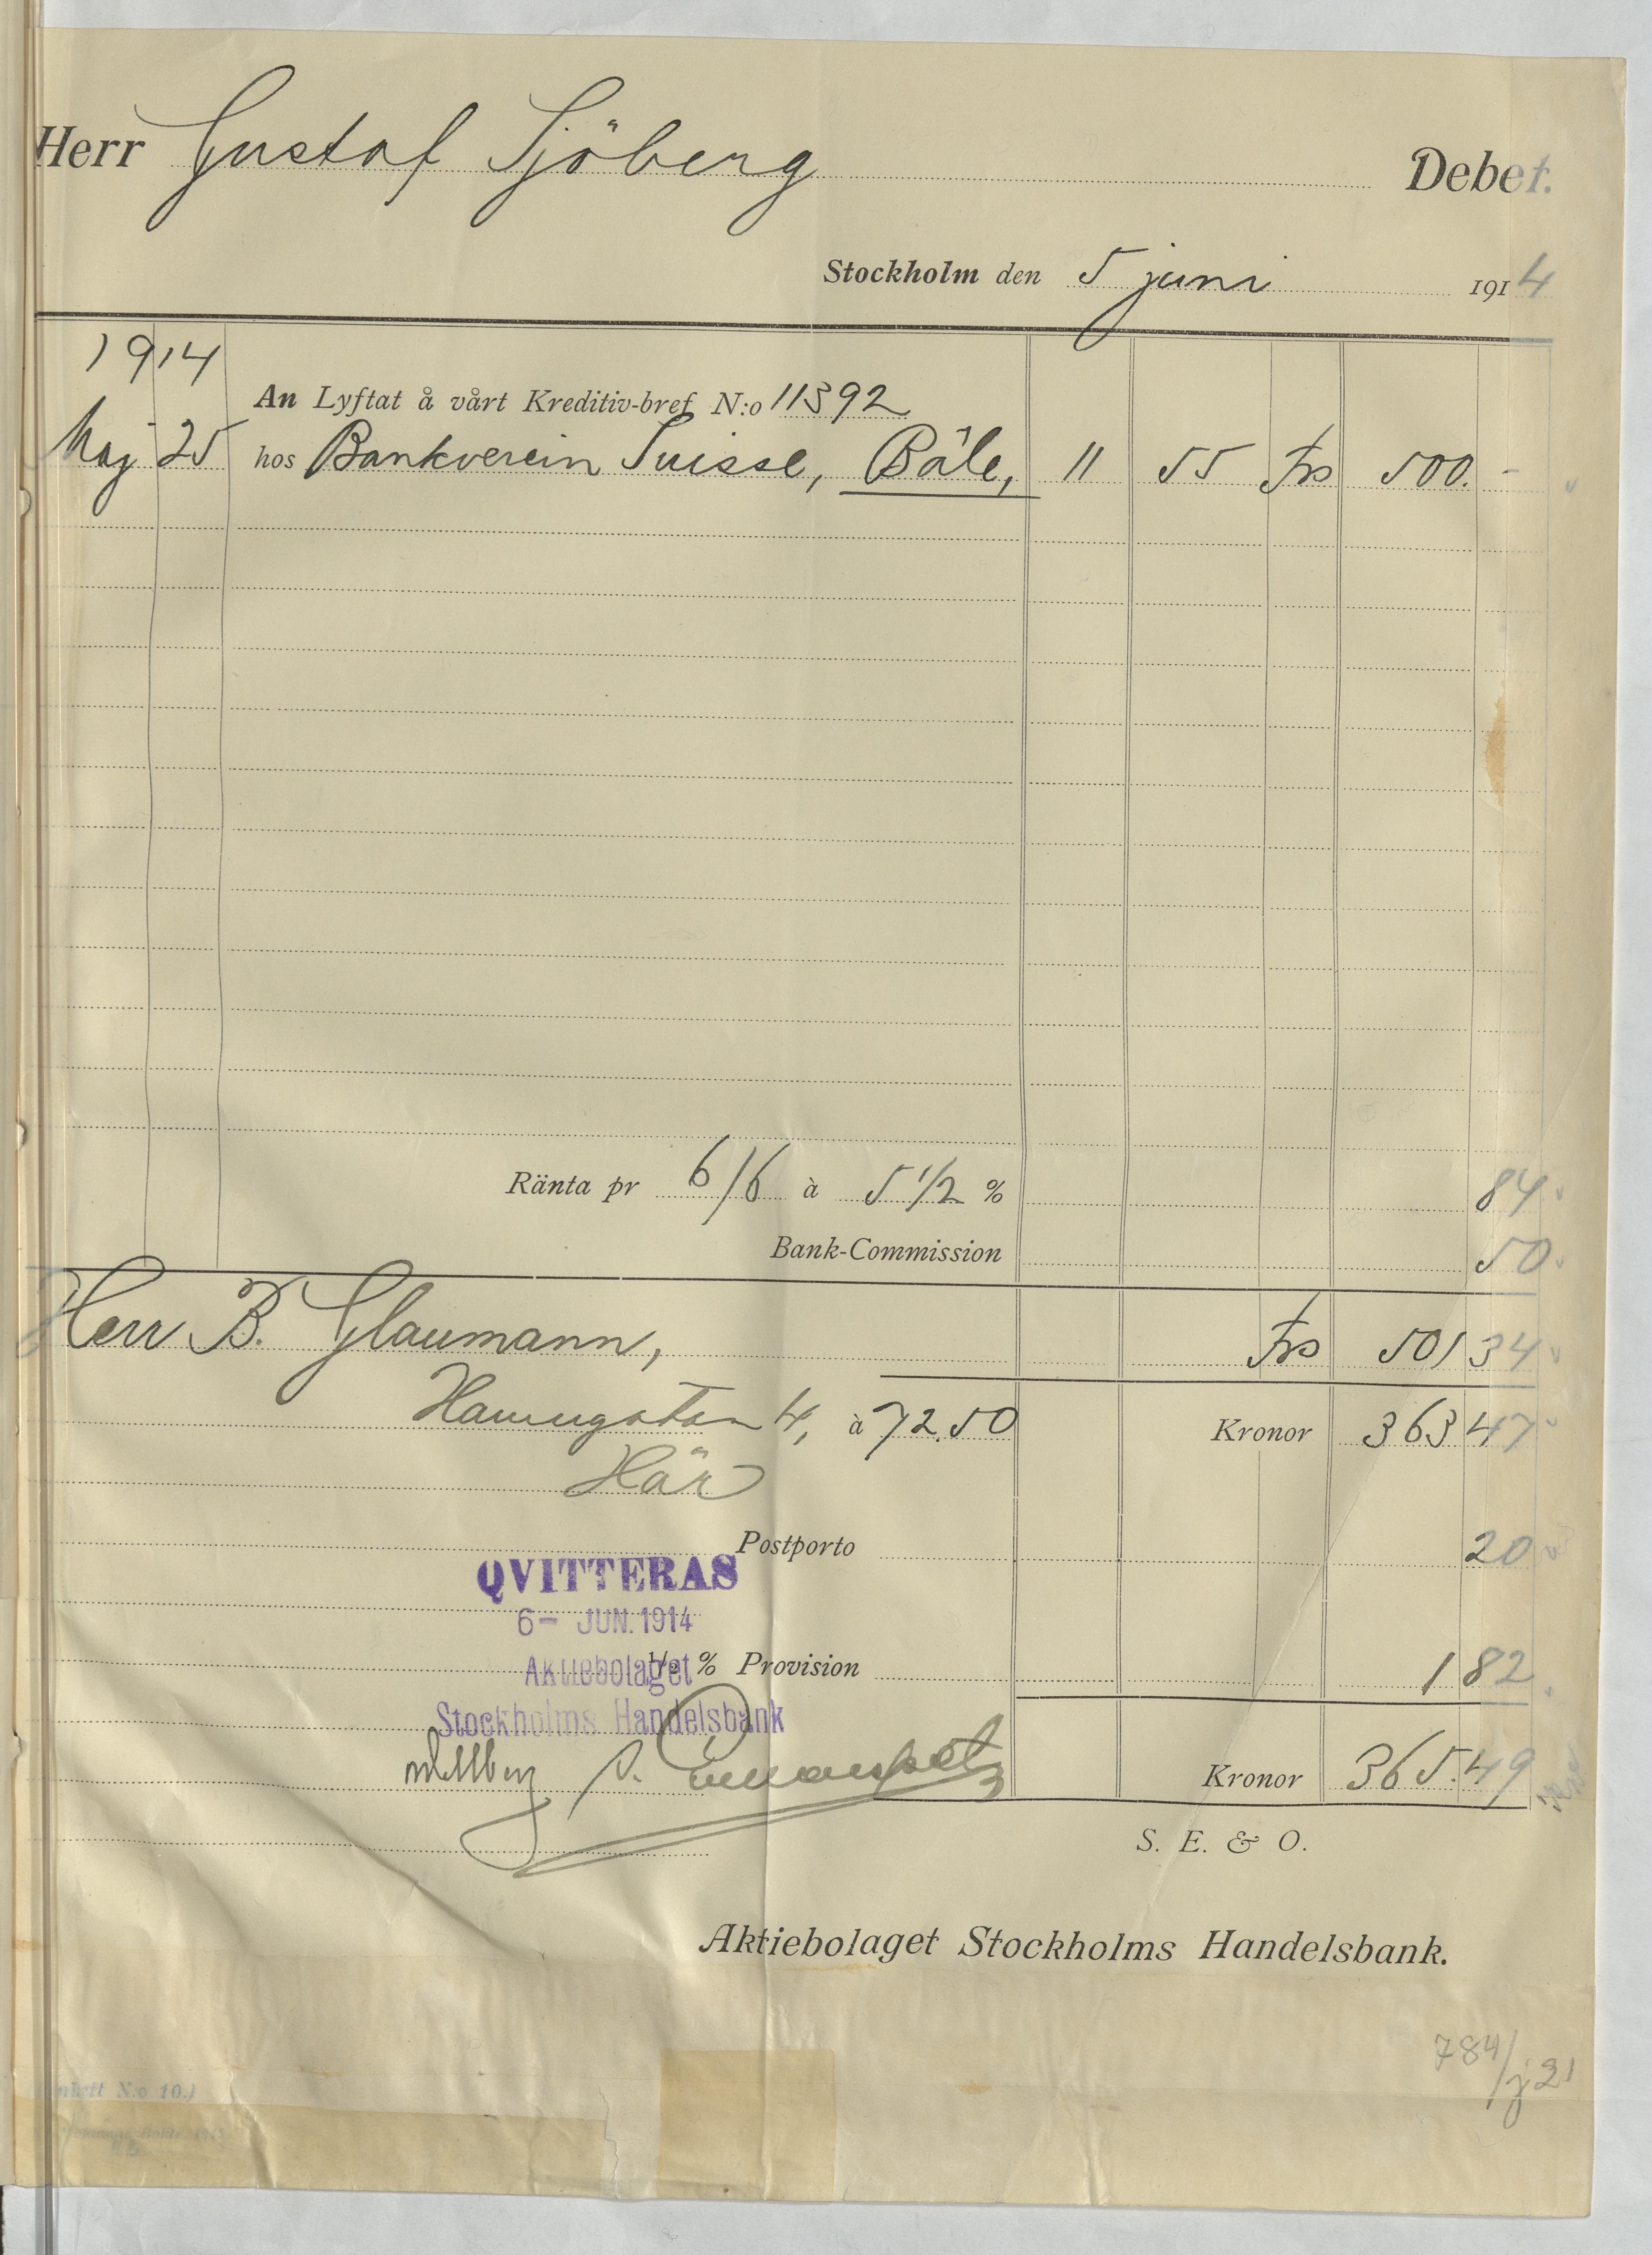 Herr Gustaf Sjöberg Debet.
Stockholm den 5 juni 1914
1914
An Lyftat å vårt Kreditiv-bref N:o 11392
Maj 25 hos Bankverein Suisse, Bâle, 11 55 frs 500. -
Ränta pr 6/6 à 5 1/2 % 84
Bank-Commission 50
Herr B. Glaumann, frs 501 34
Hamngatan 4, à 72.50 Kronor 363 47
Här
Postporto 20
QVITTERAS
6- JUN. 1914
% Provision 1 82
Aktiebolaget
Stockholms Handelsbank
Kronor 365.49
S. E. & O.
Aktiebolaget Stockholms Handelsbank.
784/j21
N:o 10.)